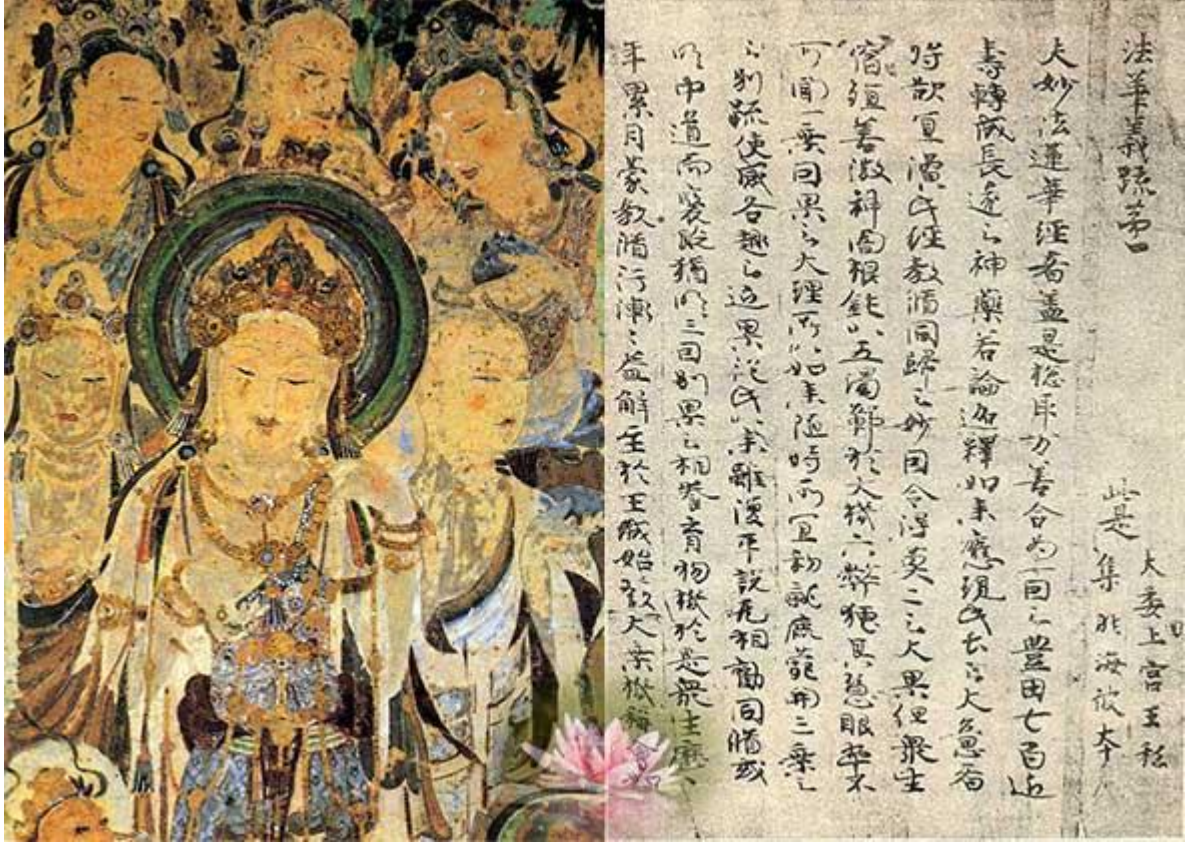 法華義疏第一
此是
大委上宮王私
集非海彼本
夫妙法蓮華経者蓋是捴取万善合為一因之豊田七百近
壽轉成長遠之神藥若論迦釋如来應現此土之大意者
将欲宜演此経教脩同歸之妙因令得莫二之大果但衆生
宿殖善微神闇根鈍以五濁鄣於大機六弊掩其慧眼卒不
可聞一乗因果之大理所以如来随時所宜初就鹿苑開三乗之
之別疏使感各趣之近果従此以来雖復平説无相勧同脩或
明中道而褒貶猶明三因別果之相養育物機於是衆生歴
年累月蒙教脩行漸々益解至於王城始發大乗機稱